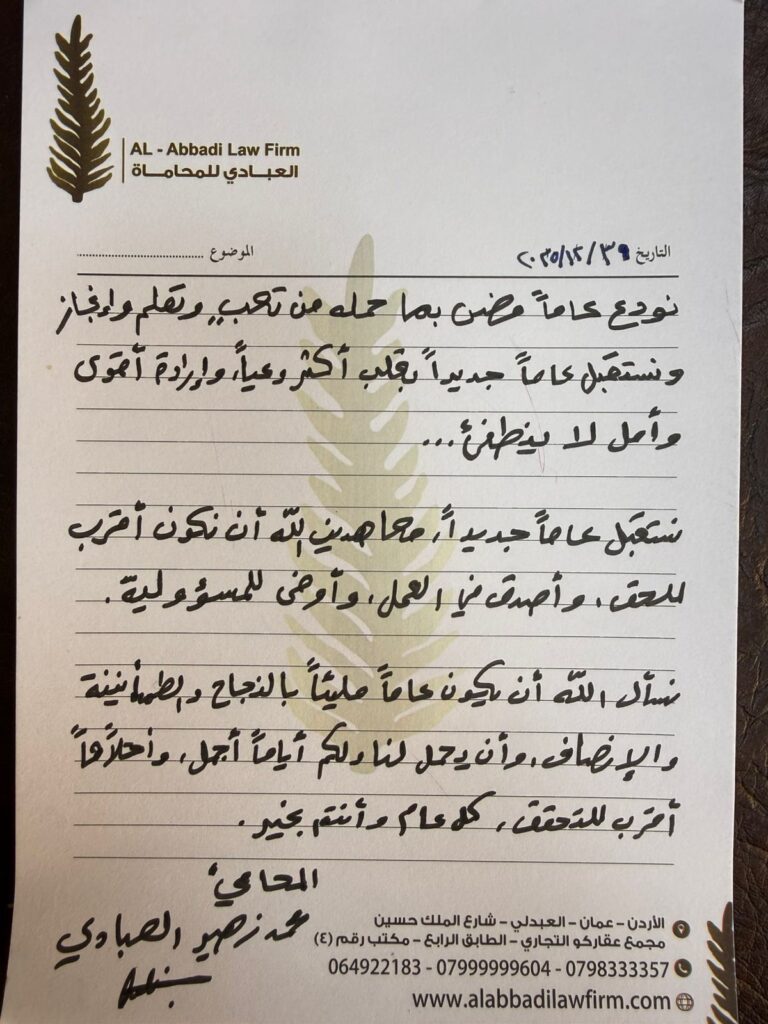 AL - Abbadi Law Firm
العبادي للمحاماة
التاريخ ٣١/١٢/٢٠٢٥ الموضوع
نودع عاماً مضى بما حمله من تعبٍ وتعلم وإنجاز
ونستقبل عاماً جديداً بقلب أكثر وعياً، وإرادة أقوى
وأمل لا ينطفئ...
نستقبل عاماً جديداً، معاهدين الله أن نكون أقرب
للحق، وأصدق في العمل، وأوفى للمسؤولية.
نسأل الله أن يكون عاماً مليئاً بالنجاح والطمأنينة
والإنصاف، وأن يحمل لنا ولكم أياماً أجمل، وأحلاماً
أقرب للتحقق، كل عام وأنتم بخير.
المحامي
محمد زهير العبادي
الأردن - عمان - العبدلي - شارع الملك حسين
مجمع عقاركو التجاري - الطابق الرابع - مكتب رقم (٤)
064922183 - 07999999604 - 0798333357
www.alabbadilawfirm.com